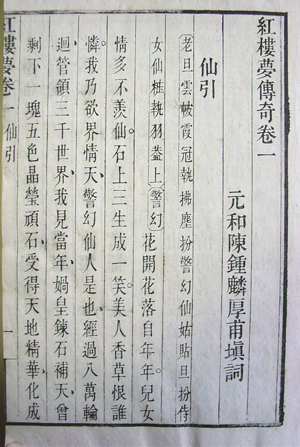 紅樓夢傳奇卷一
元和陳鍾麟厚甫塡詞
仙引
老旦雲帔霞冠執拂塵扮警幻仙姑貼旦扮侍
女仙樵執羽葢上警幻花開花落自年年兒女
情多不羨仙石上三生成一笑美人香草恨誰
憐我乃欲界情天警幻仙人是也經過八萬輪
迴管領三千世界我見當年媧皇鍊石補天曾
剩下一塊五色晶瑩頑石受得天地精華化成
紅樓夢 卷一 仙引 一